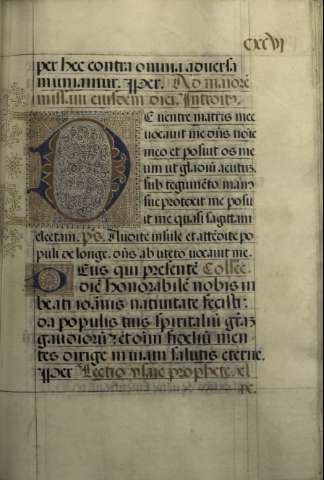 CXCVI
per hec contra omnia aduersa
muniantur. Per. Ad maiorē
missam eiusdem diei. Introitꝰ.
DE ventre matris mee
vocauit me dn̄s noīe
meo et posuit os me
um ut gladiū acutus.
sub tegumēto manꝰ
sue protexit me posu
it me quasi sagittam
electam. Ps. Audite insule et attēdite po
puli de longe. dn̄s ab utero vocauit me.
Deus qui presentē Collec̄.
diē honorabilē nobis in
beati ioānis natiuitate fecisti:
da populis tuis spiritaliū gr̄aꝝ
gaudiorū: et oīm fideliū men
tes dirige in uiam salutis eterne.
Per Lectio ysaie prophete. xl